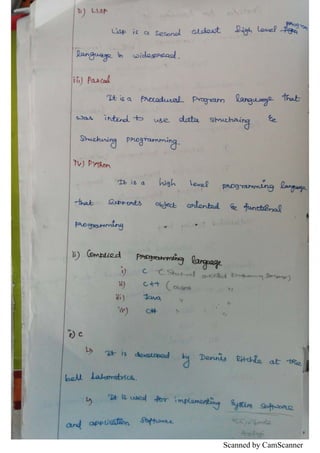 ii) Lisp
Lisp is a second oldest high level program
language in widespread.
iii) Pascal
It is a Procedural Program language that
was intend to use data structuring &
Structuring programming.
iv) Python
It is a high level programming language
that supports object oriented & functional
programming
ii) Compiled programming language
i) C
ii) C++ (
iii) Java "
iv) C# "
i) C
↳ It is developed by Dennis Ritchie at the
bell Labrotries.
↳ It is used for implementing System software
and application software
Scanned by CamScanner